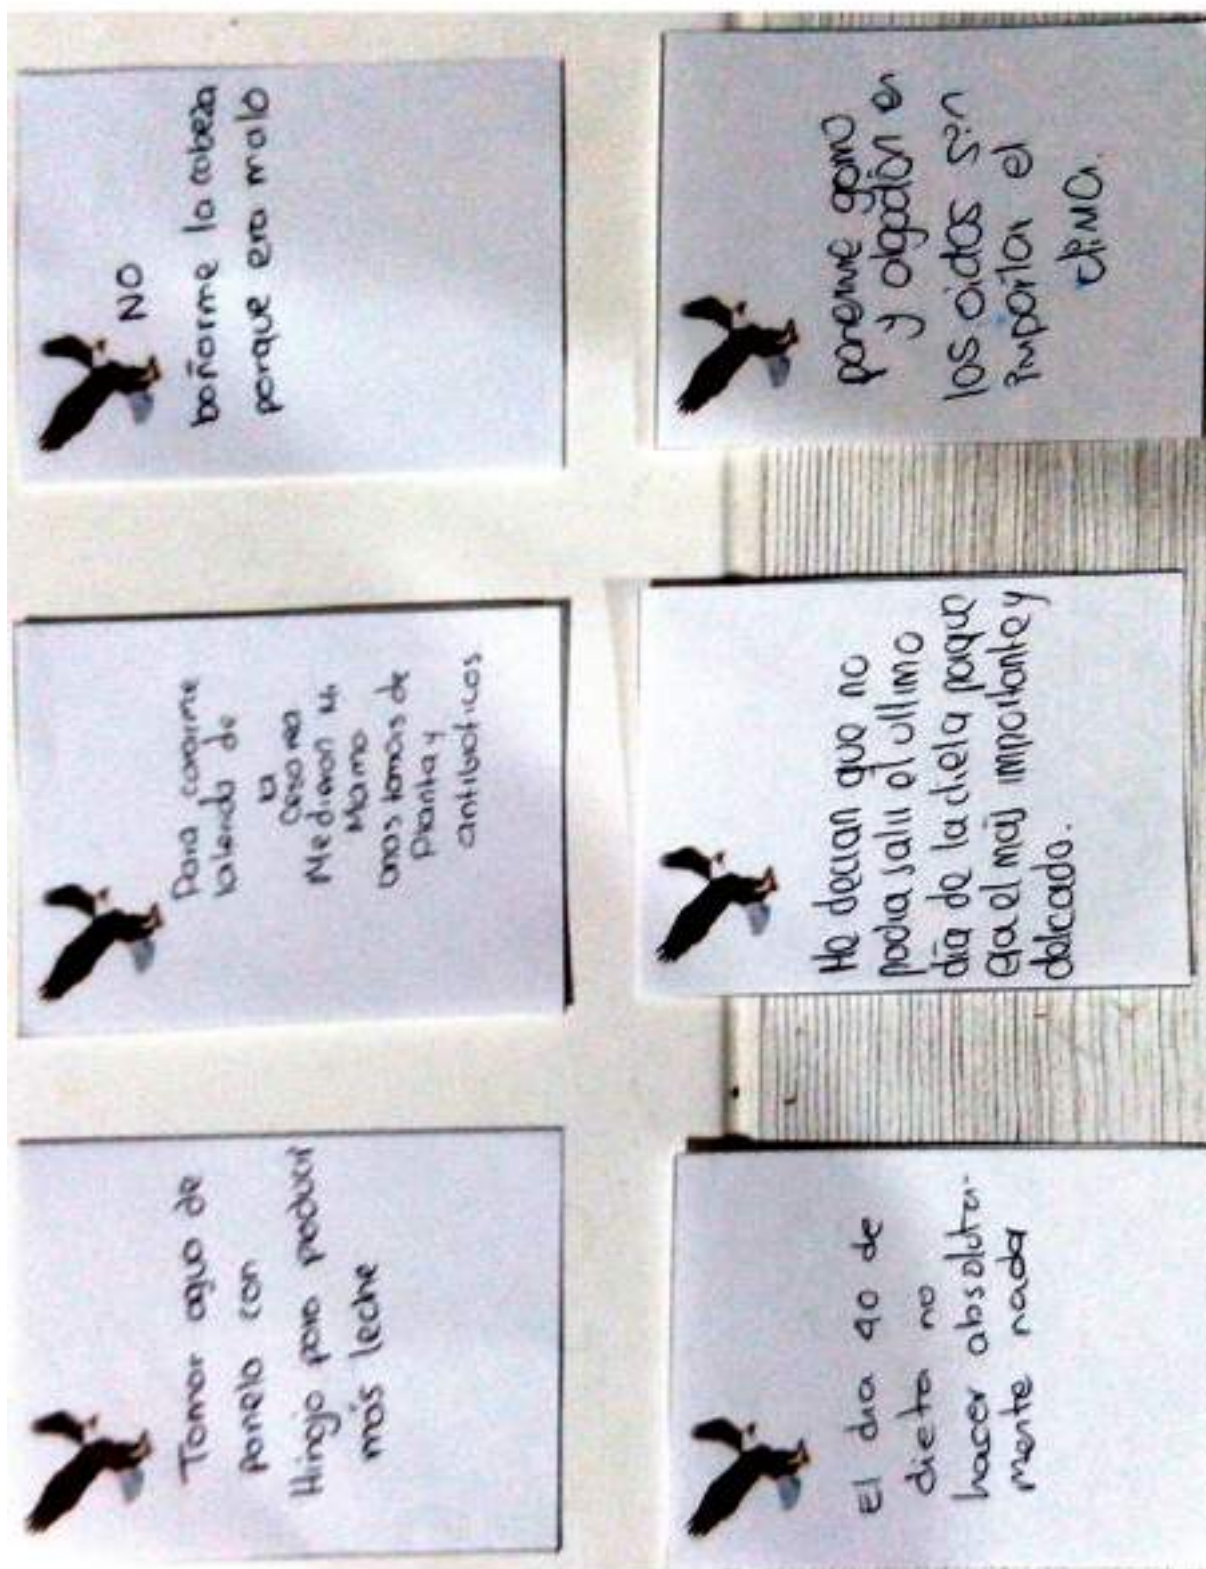 Tomar agua de
panela con
Hinojo para producir
más leche
Para curarme
la herida de
la
Cesarea
Me dieron mi
Mamá
unas tomas de
Planta y
antibioticos
NO
bañarme la cabeza
porque era malo
El dia 40 de
dieta no
hacer absoluta-
mente nada
Me decian que no
podia salir el ultimo
día de la dieta porque
era el más importante y
delicado.
ponerme gorro
y algodón en
los oidos sin
importar el
clima.